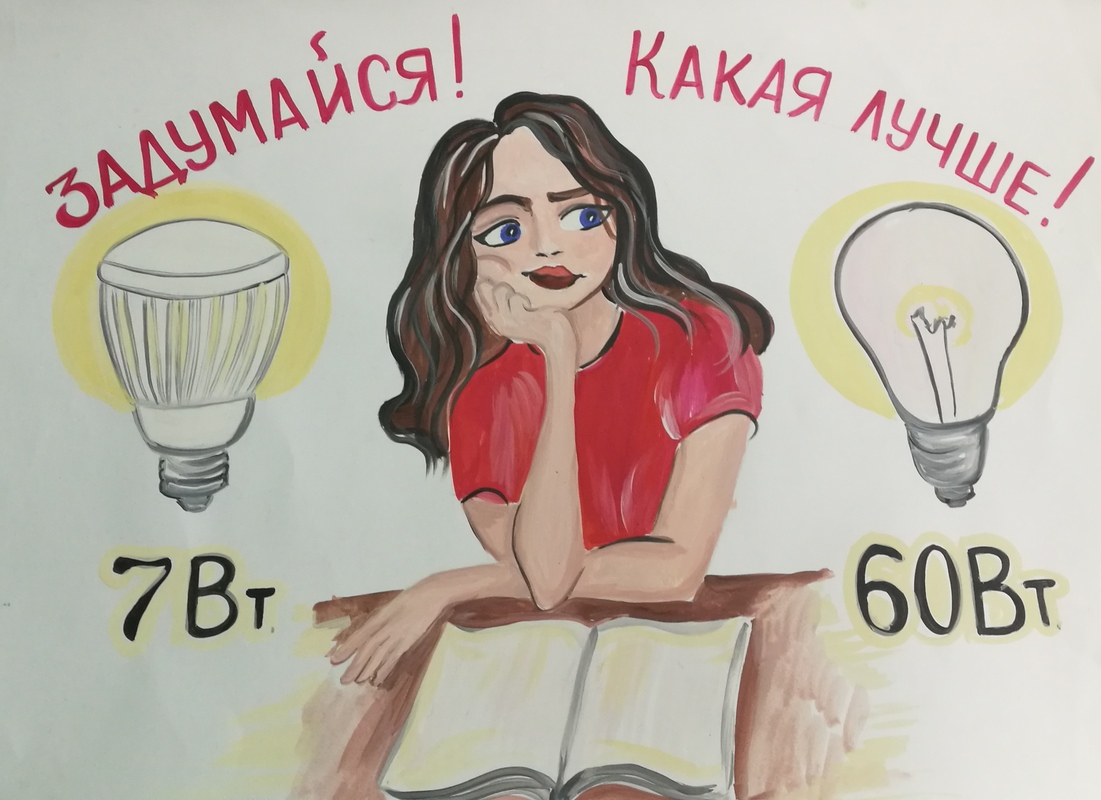 ЗАДУМАЙСЯ!
КАКАЯ ЛУЧШЕ!
7Вт
60Вт